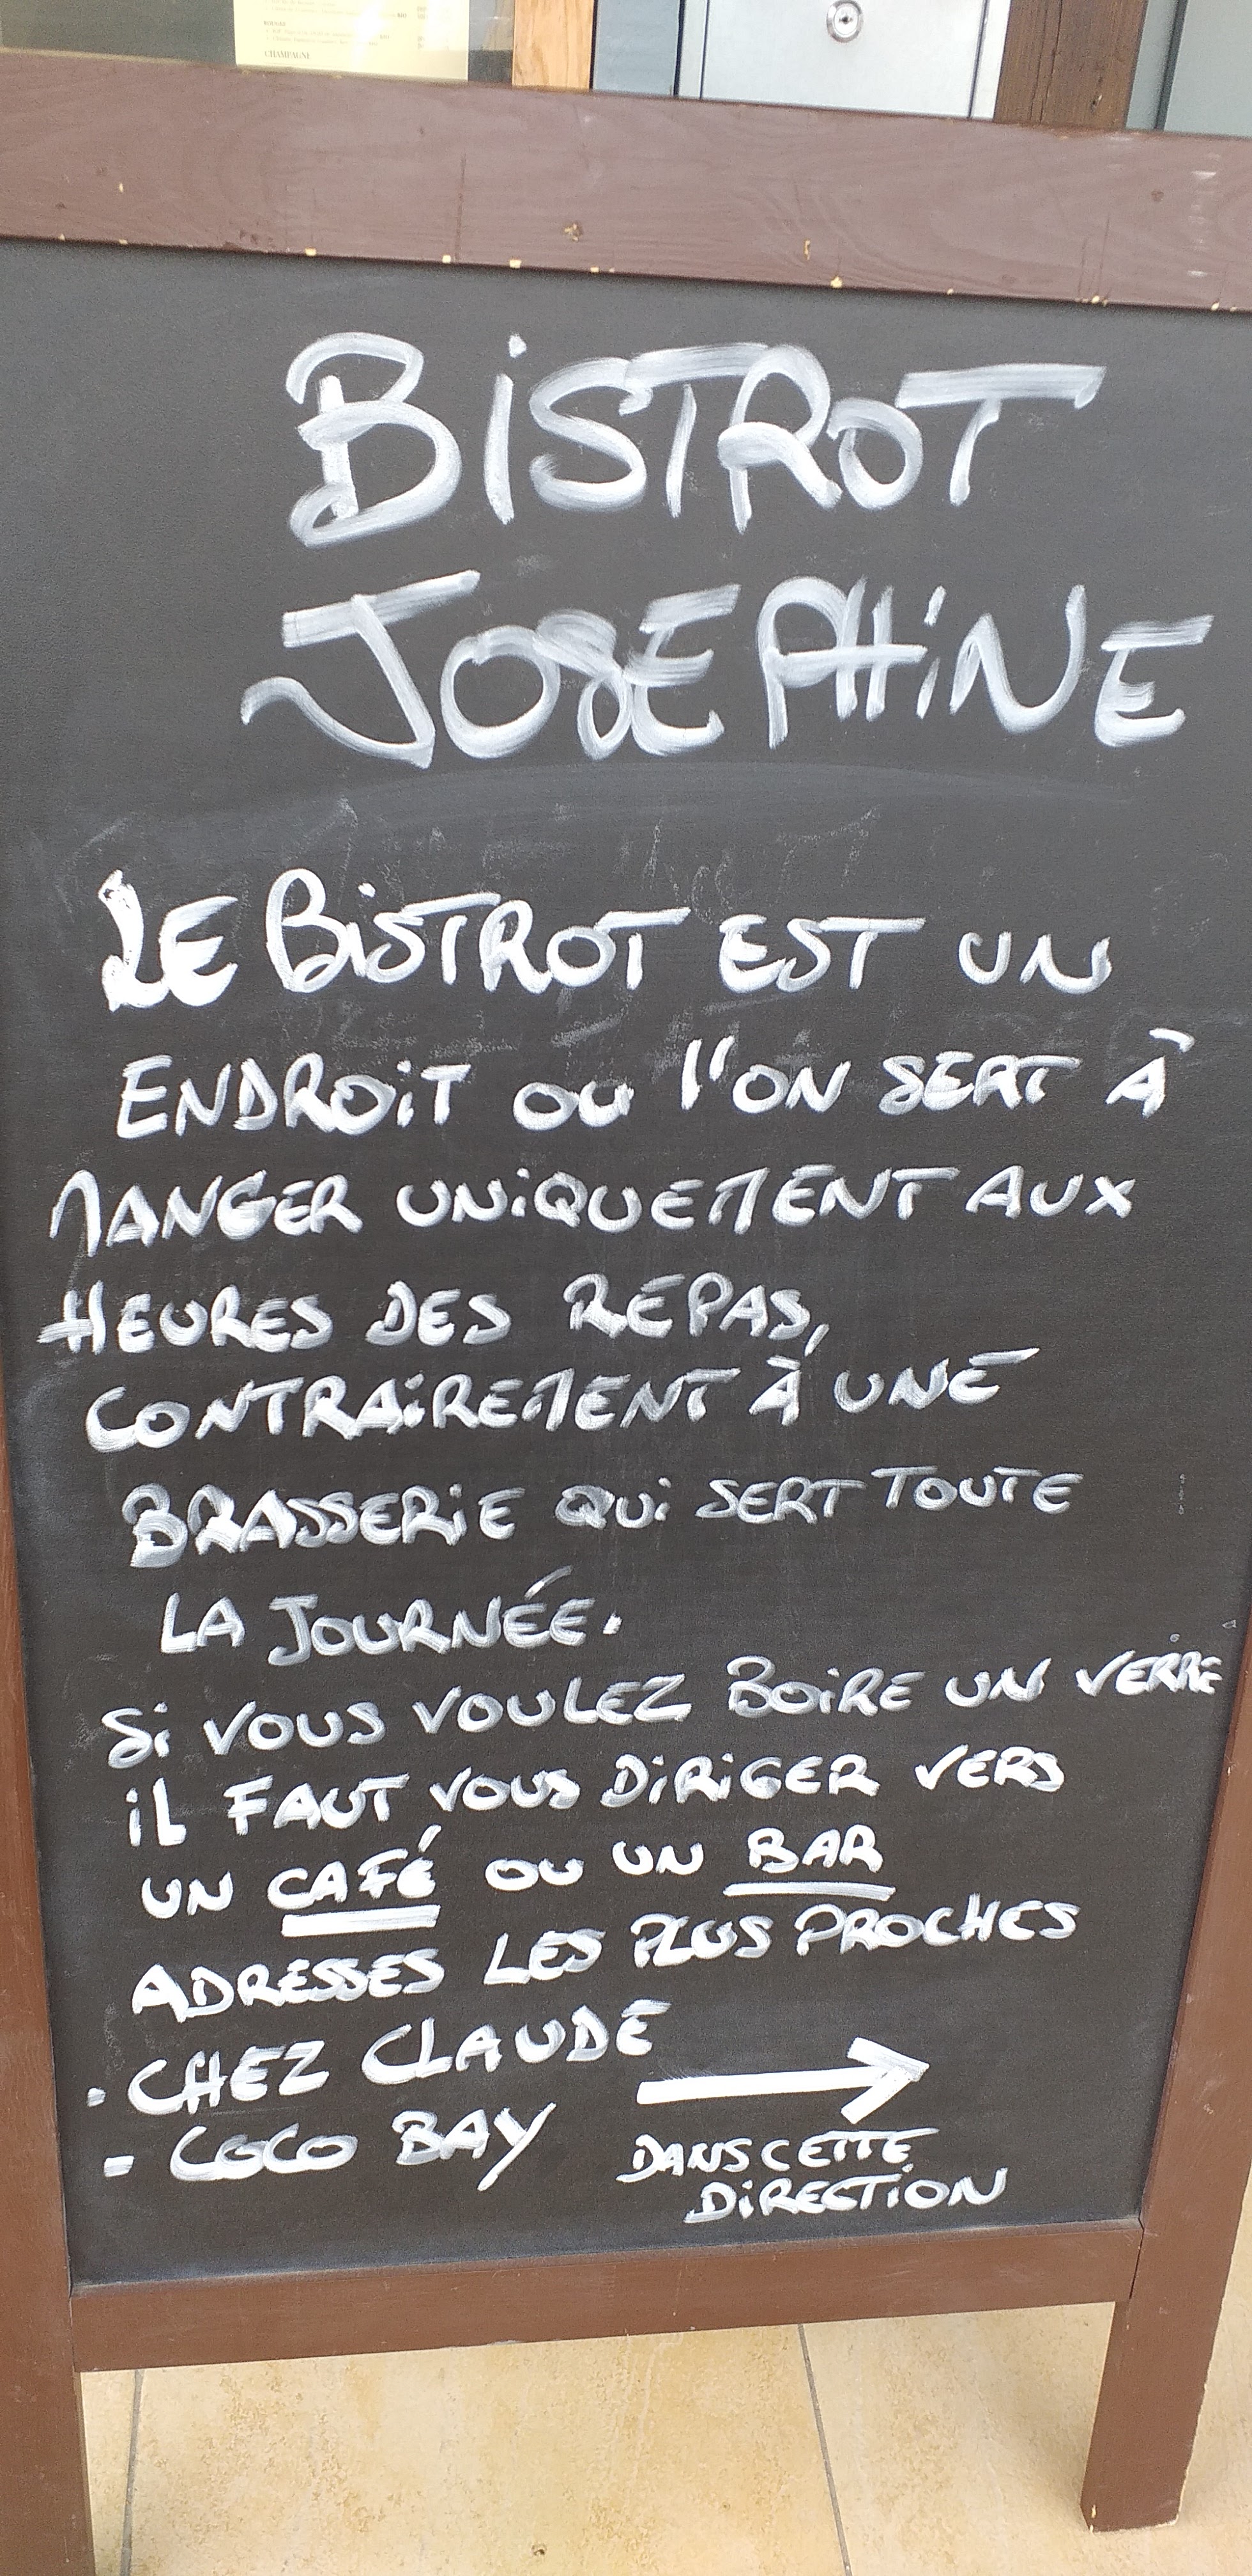 CHAMPAGNE
BiSTROT
JOSEPHiNE
LE BiSTROT EST UN
ENDROiT OU l'ON SERT À
MANGER UNiQUEMENT AUX
HEURES DES REPAS,
CONTRAiREMENT À UNE
BRASSERiE QUi SERT TOUTE
LA JOURNÉE.
Si VOUS VOULEZ BOiRE UN VERRE
iL FAUT VOUS DiRiGER VERS
UN CAFÉ OU UN BAR
ADRESSES LES PLUS PROCHES
· CHEZ CLAUDE
- COCO BAY
DANS CETTE
DiRECTiON